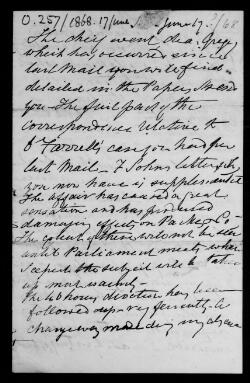 O.257/1868. 17 June
June 17/68
The chief event dear
which has occurred since
last Mail you will find
detailed in the Papers I send
you - The first part of the
correspondence relative to
O'Farrell's case you had per
last Mail - I
you now have is supplemental
The affair has caused a great
sensation and has produced
damaging effects on Parkes & Co.
The extent of these will not be seen
until Parliament meets when
I expect the subject will be taken
up most warmly -
The 48 hours direction has been
followed up very fervently. A
change was made during my absence